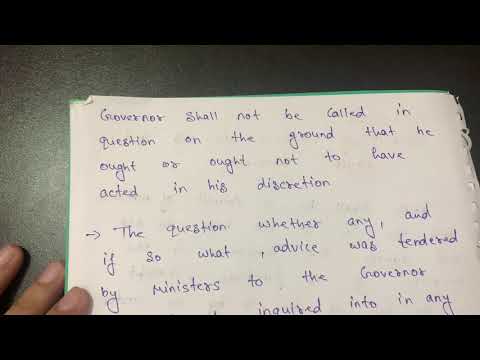 Governor shall not be called in
question on the ground that he
ought or ought not to have
acted in his discretion
→ The question whether any, and
if so what, advice was tendered
by Ministers to the Governor
inquired into in any